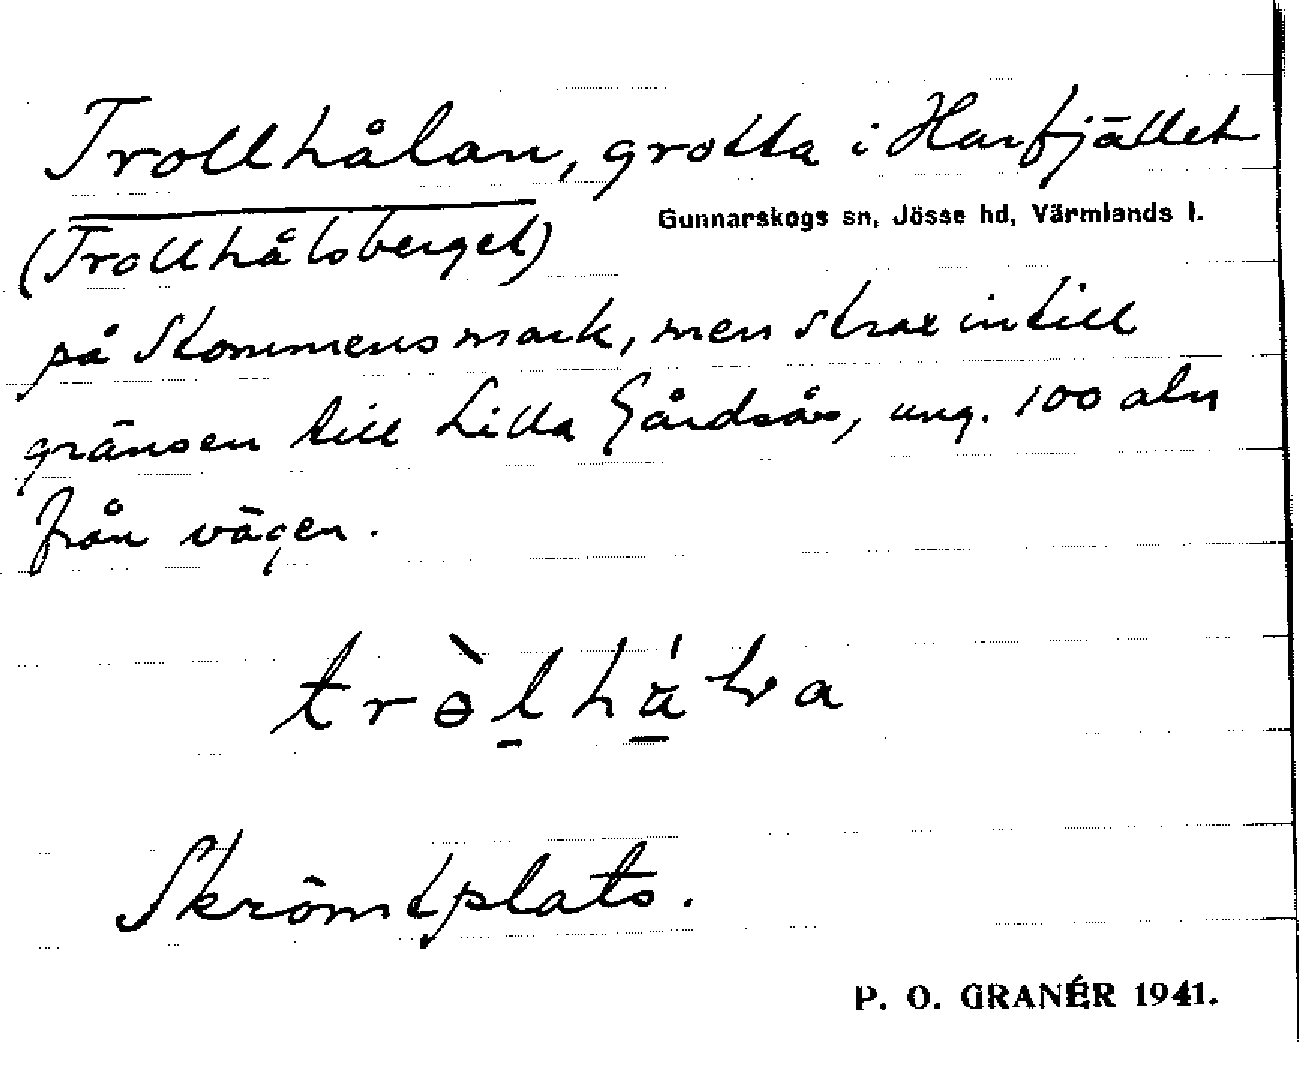 Trollhålan, grotta i Harfjället
Gunnarskogs sn, Jösse hd, Värmlands l.
(Trollhålsberget)
på Stommens mark, men strax intill
gränsen till Lilla Gårdsås, ung. 100 aln
från vägen.
Skrömtplats.
P. O. GRANÉR 1941.